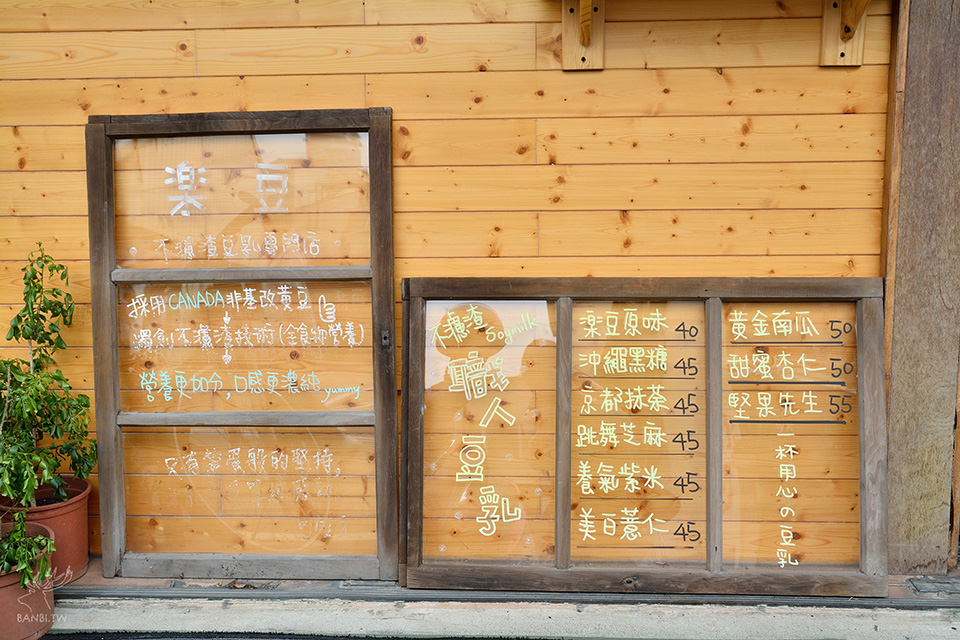 楽豆
不濾渣豆乳專門店
採用CANADA非基改黃豆
獨創不濾渣技術(全食物營養)
營養更加分,口感更濃純 yummy
的堅持,
不濾渣 Soymilk
職人豆乳
楽豆原味 40
沖繩黑糖 45
京都抹茶 45
跳舞芝麻 45
養氣紫米 45
美白薏仁 45
黃金南瓜 50
甜蜜杏仁 50
堅果先生 55
一杯用心の豆乳
BANBI.TW